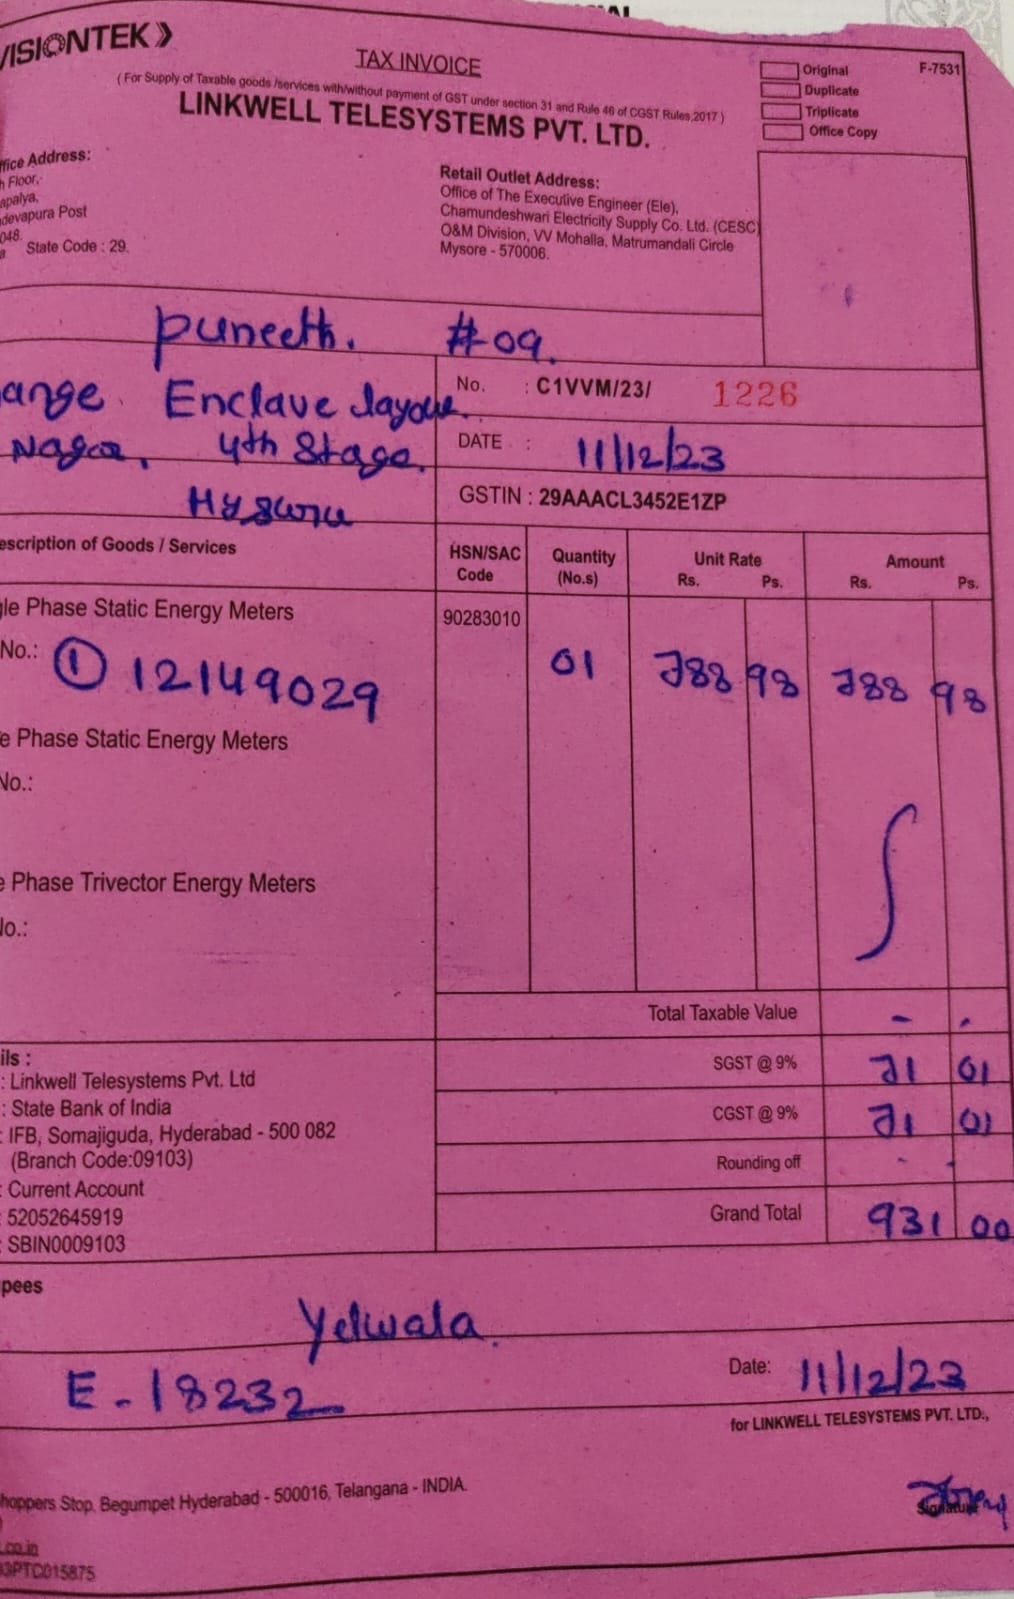 VISIONTEK
TAX INVOICE
Original
F-7531
Duplicate
Triplicate
Office Copy
( For Supply of Taxable goods /services with/without payment of GST under section 31 and Rule 46 of CGST Rules,2017 )
LINKWELL TELESYSTEMS PVT. LTD.
ffice Address:
h Floor,
apalya,
devapura Post
048.
State Code : 29.
Retail Outlet Address:
Office of The Executive Engineer (Ele),
Chamundeshwari Electricity Supply Co. Ltd. (CESC)
O&M Division, VV Mohalla, Matrumandali Circle
Mysore - 570006.
Puneeth. #09.
ange Enclave layout
Nagar, 4th Stage.
Mysuru
No. : C1VVM/23/ 1226
DATE : 11/12/23
GSTIN : 29AAACL3452E1ZP
escription of Goods / Services
HSN/SAC Code
Quantity (No.s)
Unit Rate
Rs. Ps.
Amount
Rs. Ps.
gle Phase Static Energy Meters
90283010
No.: ① 12149029
01 788 98 788 98
e Phase Static Energy Meters
No.:
e Phase Trivector Energy Meters
No.:
Total Taxable Value - -
SGST @ 9% 71 01
CGST @ 9% 71 01
Rounding off - -
Grand Total 931 00
ils :
: Linkwell Telesystems Pvt. Ltd
: State Bank of India
: IFB, Somajiguda, Hyderabad - 500 082
(Branch Code:09103)
: Current Account
: 52052645919
: SBIN0009103
pees
Yelwala
E-18232
Date: 11/12/23
for LINKWELL TELESYSTEMS PVT. LTD.,
hoppers Stop, Begumpet Hyderabad - 500016, Telangana - INDIA.
Signature
.co.in
3PTC015875